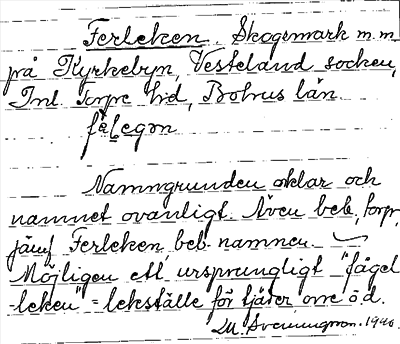 Ferleken. Skogsmark m.m
på Kyrkebyn, Vesteland socken,
Inl. Torpe hd, Bohus län.
Namngrunden oklar och
namnet ovanligt. Även beb., torp,
jämf Ferleken, beb-namnen.
Möjligen ett ursprungligt "fågel
-leken" = lekställe för tjäder, orre o.d.
1946.